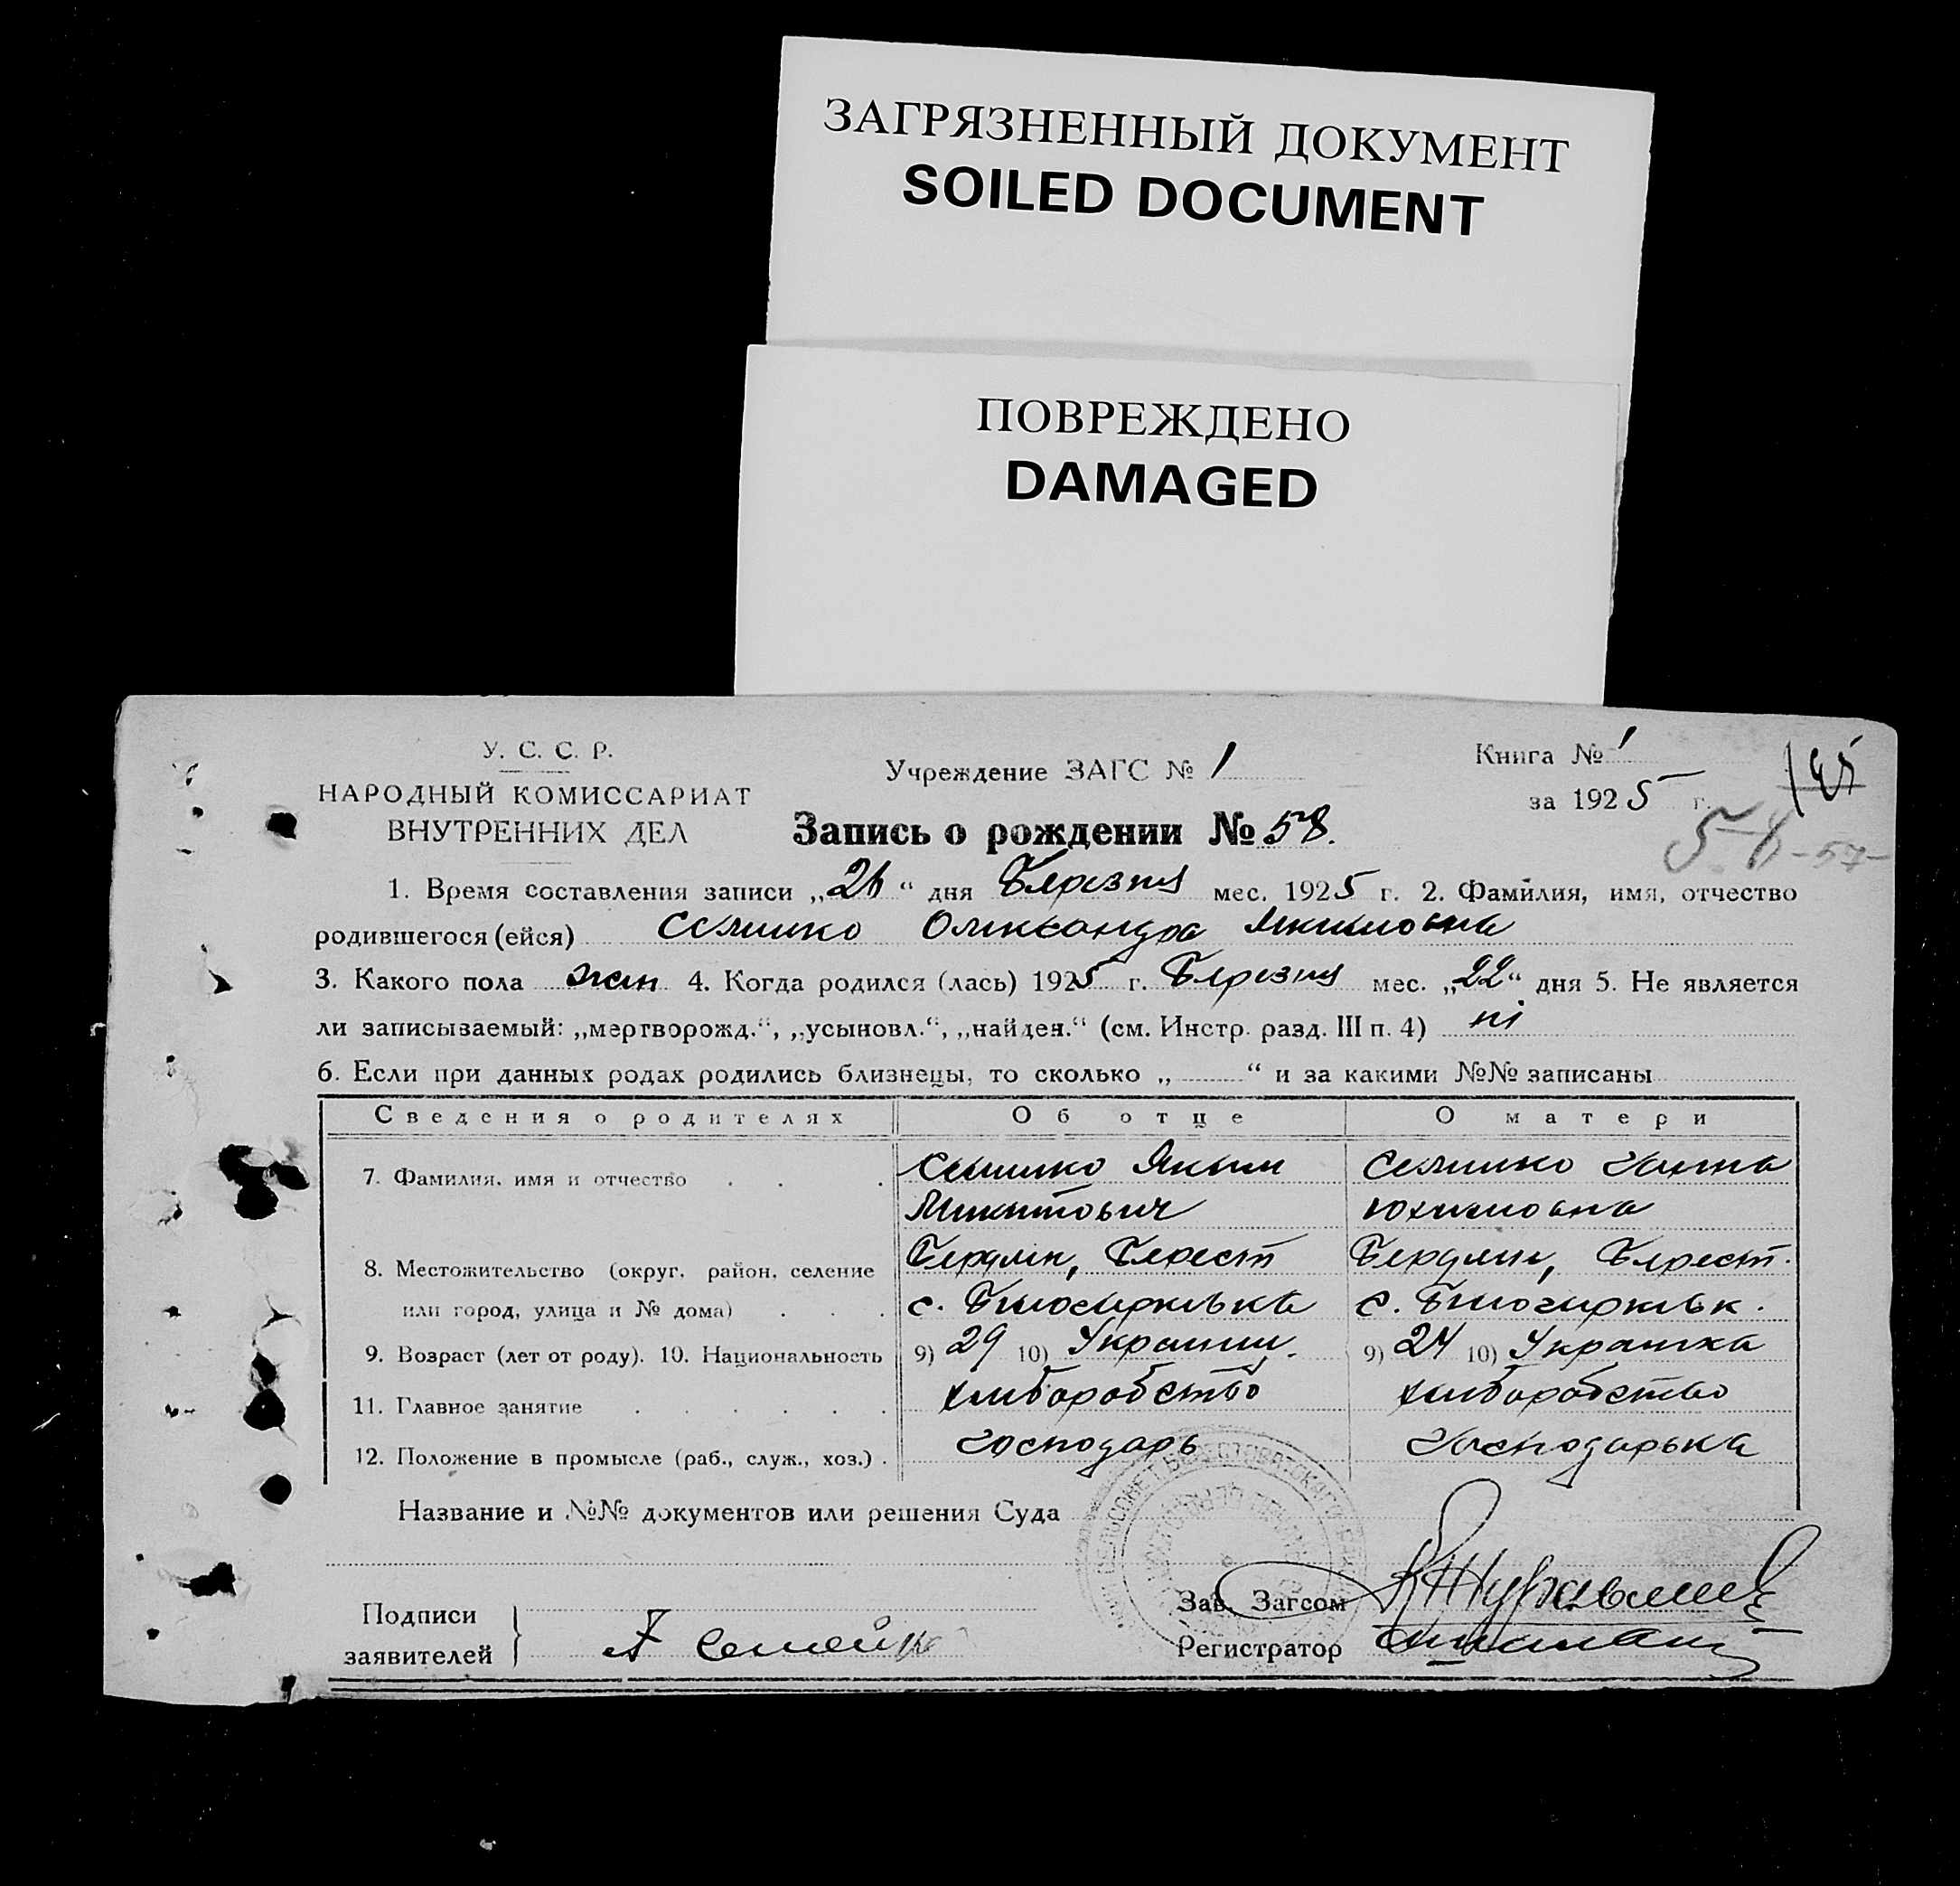 ЗАГРЯЗНЕННЫЙ ДОКУМЕНТ
SOILED DOCUMENT
ПОВРЕЖДЕНО
DAMAGED
У. С. С. Р.
НАРОДНЫЙ КОМИССАРИАТ
ВНУТРЕННИХ ДЕЛ
Учреждение ЗАГС № 1
Книга № 1
за 1925 г.
195
Запись о рождении № 58.
58 -57-
1. Время составления записи „26“ дня Березня мес. 1925 г. 2. Фамилия, имя, отчество
родившегося (ейся) Олександра Якимовна
3. Какого пола жен 4. Когда родился (лась) 1925 г. Березня мес. „22“ дня 5. Не является
ли записываемый: „мертворожд.“, „усыновл.“, „найден.“ (см. Инстр. разд. III п. 4) ні
6. Если при данных родах родились близнецы, то сколько „ “ и за какими №№ записаны
Сведения о родителях Об отце О матери
7. Фамилия, имя и отчество Яким
Микитович Юхимовна
8. Местожительство (округ, район, селение Бердян, Берест Бердян, Берест.
или город, улица и № дома) с. с.
9. Возраст (лет от роду). 10. Национальность 9) 29 10) Украинец. 9) 24 10) Украинка
11. Главное занятие хлиборобство хлиборобство
12. Положение в промысле (раб., служ., хоз.) господарь господарька
Название и №№ документов или решения Суда
Подписи
заявителей
Зав. Загсом
Регистратор